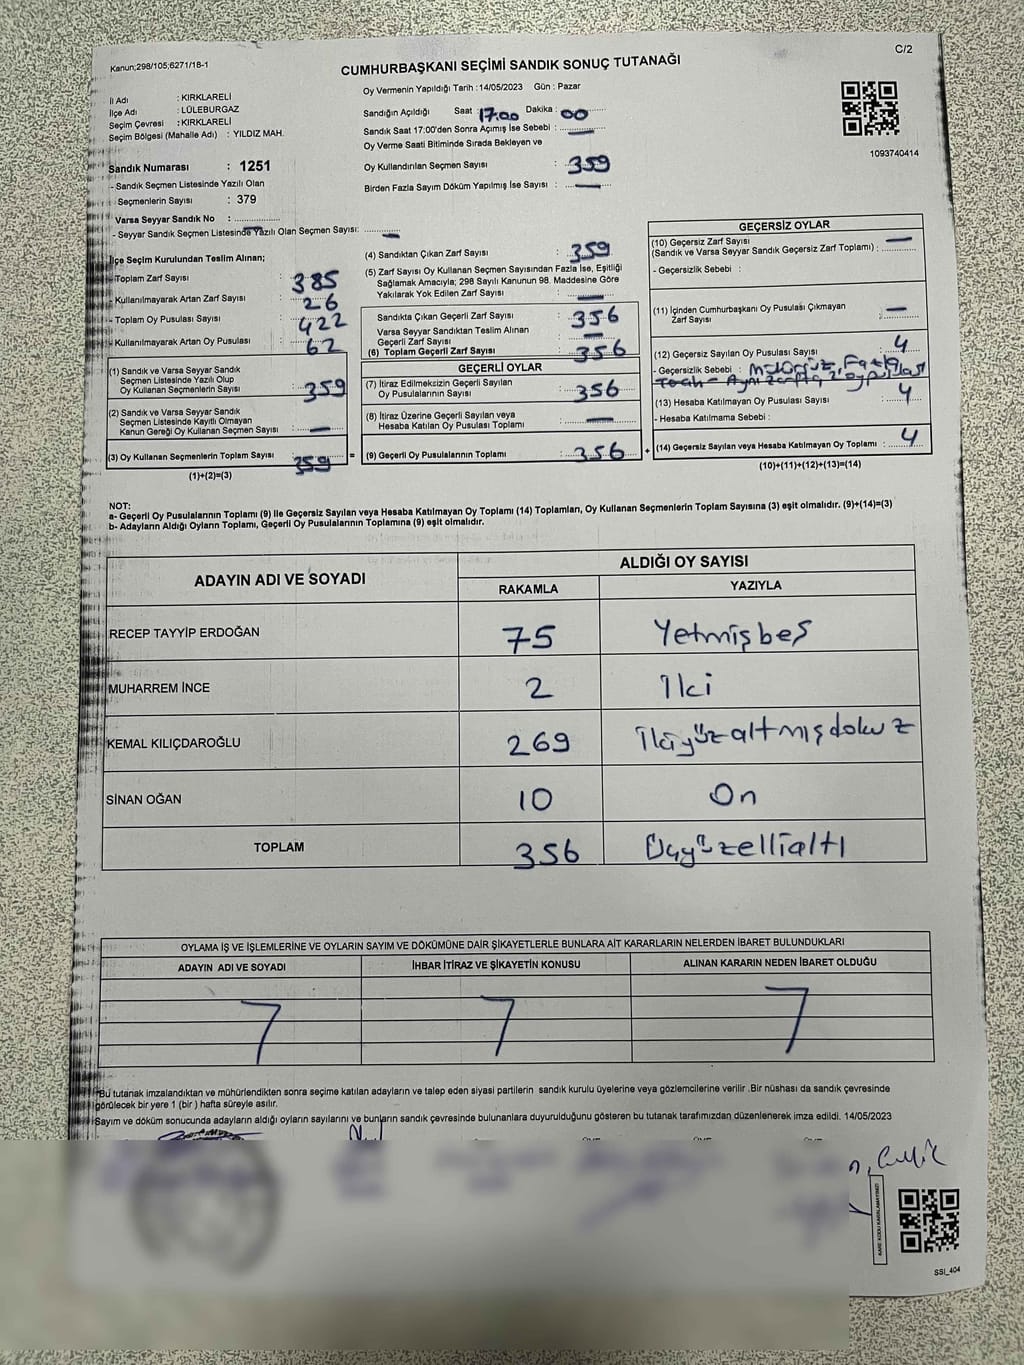 Kanun;298/105;6271/18-1
C/2
CUMHURBAŞKANI SEÇİMİ SANDIK SONUÇ TUTANAĞI
İl Adı : KIRKLARELİ
İlçe Adı : LÜLEBURGAZ
Seçim Çevresi : KIRKLARELİ
Seçim Bölgesi (Mahalle Adı) : YILDIZ MAH.
Sandık Numarası : 1251
- Sandık Seçmen Listesinde Yazılı Olan
Seçmenlerin Sayısı : 379
Varsa Seyyar Sandık No :
- Seyyar Sandık Seçmen Listesinde Yazılı Olan Seçmen Sayısı: —
Oy Vermenin Yapıldığı Tarih :14/05/2023 Gün : Pazar
Sandığın Açıldığı Saat : 17.00 Dakika : 00
Sandık Saat 17:00'den Sonra Açımış İse Sebebi : —
Oy Verme Saati Bitiminde Sırada Bekleyen ve
Oy Kullandırılan Seçmen Sayısı : 359
Birden Fazla Sayım Döküm Yapılmış İse Sayısı : —
1093740414
İlçe Seçim Kurulundan Teslim Alınan;
- Toplam Zarf Sayısı : 385
- Kullanılmayarak Artan Zarf Sayısı : 26
- Toplam Oy Pusulası Sayısı : 422
- Kullanılmayarak Artan Oy Pusulası : 62
(1) Sandık ve Varsa Seyyar Sandık
Seçmen Listesinde Yazılı Olup
Oy Kullanan Seçmenlerin Sayısı : 359
(2) Sandık ve Varsa Seyyar Sandık
Seçmen Listesinde Kayıtlı Olmayan
Kanun Gereği Oy Kullanan Seçmen Sayısı : —
(3) Oy Kullanan Seçmenlerin Toplam Sayısı : 359
(1)+(2)=(3)
(4) Sandıktan Çıkan Zarf Sayısı : 359
(5) Zarf Sayısı Oy Kullanan Seçmen Sayısından Fazla İse, Eşitliği
Sağlamak Amacıyla; 298 Sayılı Kanunun 98. Maddesine Göre
Yakılarak Yok Edilen Zarf Sayısı : —
Sandıkta Çıkan Geçerli Zarf Sayısı : 356
Varsa Seyyar Sandıktan Teslim Alınan
Geçerli Zarf Sayısı : —
(6) Toplam Geçerli Zarf Sayısı : 356
GEÇERLİ OYLAR
(7) İtiraz Edilmeksizin Geçerli Sayılan
Oy Pusulalarının Sayısı : 356
(8) İtiraz Üzerine Geçerli Sayılan veya
Hesaba Katılan Oy Pusulası Toplamı : —
= (9) Geçerli Oy Pusulalarının Toplamı : 356
GEÇERSİZ OYLAR
(10) Geçersiz Zarf Sayısı
(Sandık ve Varsa Seyyar Sandık Geçersiz Zarf Toplamı) : —
- Geçersizlik Sebebi :
(11) İçinden Cumhurbaşkanı Oy Pusulası Çıkmayan
Zarf Sayısı : —
(12) Geçersiz Sayılan Oy Pusulası Sayısı : 4
- Geçersizlik Sebebi : Mühürsüz, Fazla
Aynı zarfta 2 oy pusulası
(13) Hesaba Katılmayan Oy Pusulası Sayısı : 4
- Hesaba Katılmama Sebebi :
+ (14) Geçersiz Sayılan veya Hesaba Katılmayan Oy Toplamı : 4
(10)+(11)+(12)+(13)=(14)
NOT:
a- Geçerli Oy Pusulalarının Toplamı (9) ile Geçersiz Sayılan veya Hesaba Katılmayan Oy Toplamı (14) Toplamları, Oy Kullanan Seçmenlerin Toplam Sayısına (3) eşit olmalıdır. (9)+(14)=(3)
b- Adayların Aldığı Oyların Toplamı, Geçerli Oy Pusulalarının Toplamına (9) eşit olmalıdır.
ADAYIN ADI VE SOYADI
ALDIĞI OY SAYISI
RAKAMLA YAZIYLA
RECEP TAYYİP ERDOĞAN 75 Yetmişbeş
MUHARREM İNCE 2 İki
KEMAL KILIÇDAROĞLU 269 İkiyüzaltmışdokuz
SİNAN OĞAN 10 On
TOPLAM 356 Üçyüzellialtı
OYLAMA İŞ VE İŞLEMLERİNE VE OYLARIN SAYIM VE DÖKÜMÜNE DAİR ŞİKAYETLERLE BUNLARA AİT KARARLARIN NELERDEN İBARET BULUNDUKLARI
ADAYIN ADI VE SOYADI İHBAR İTİRAZ VE ŞİKAYETİN KONUSU ALINAN KARARIN NEDEN İBARET OLDUĞU
Bu tutanak imzalandıktan ve mühürlendikten sonra seçime katılan adayların ve talep eden siyasi partilerin sandık kurulu üyelerine veya gözlemcilerine verilir .Bir nüshası da sandık çevresinde
görülecek bir yere 1 (bir ) hafta süreyle asılır.
Sayım ve döküm sonucunda adayların aldığı oyların sayılarını ve bunların sandık çevresinde bulunanlara duyurulduğunu gösteren bu tutanak tarafımızdan düzenlenerek imza edildi. 14/05/2023
KARE KODU KARALAMAYINIZ!
SSI_404